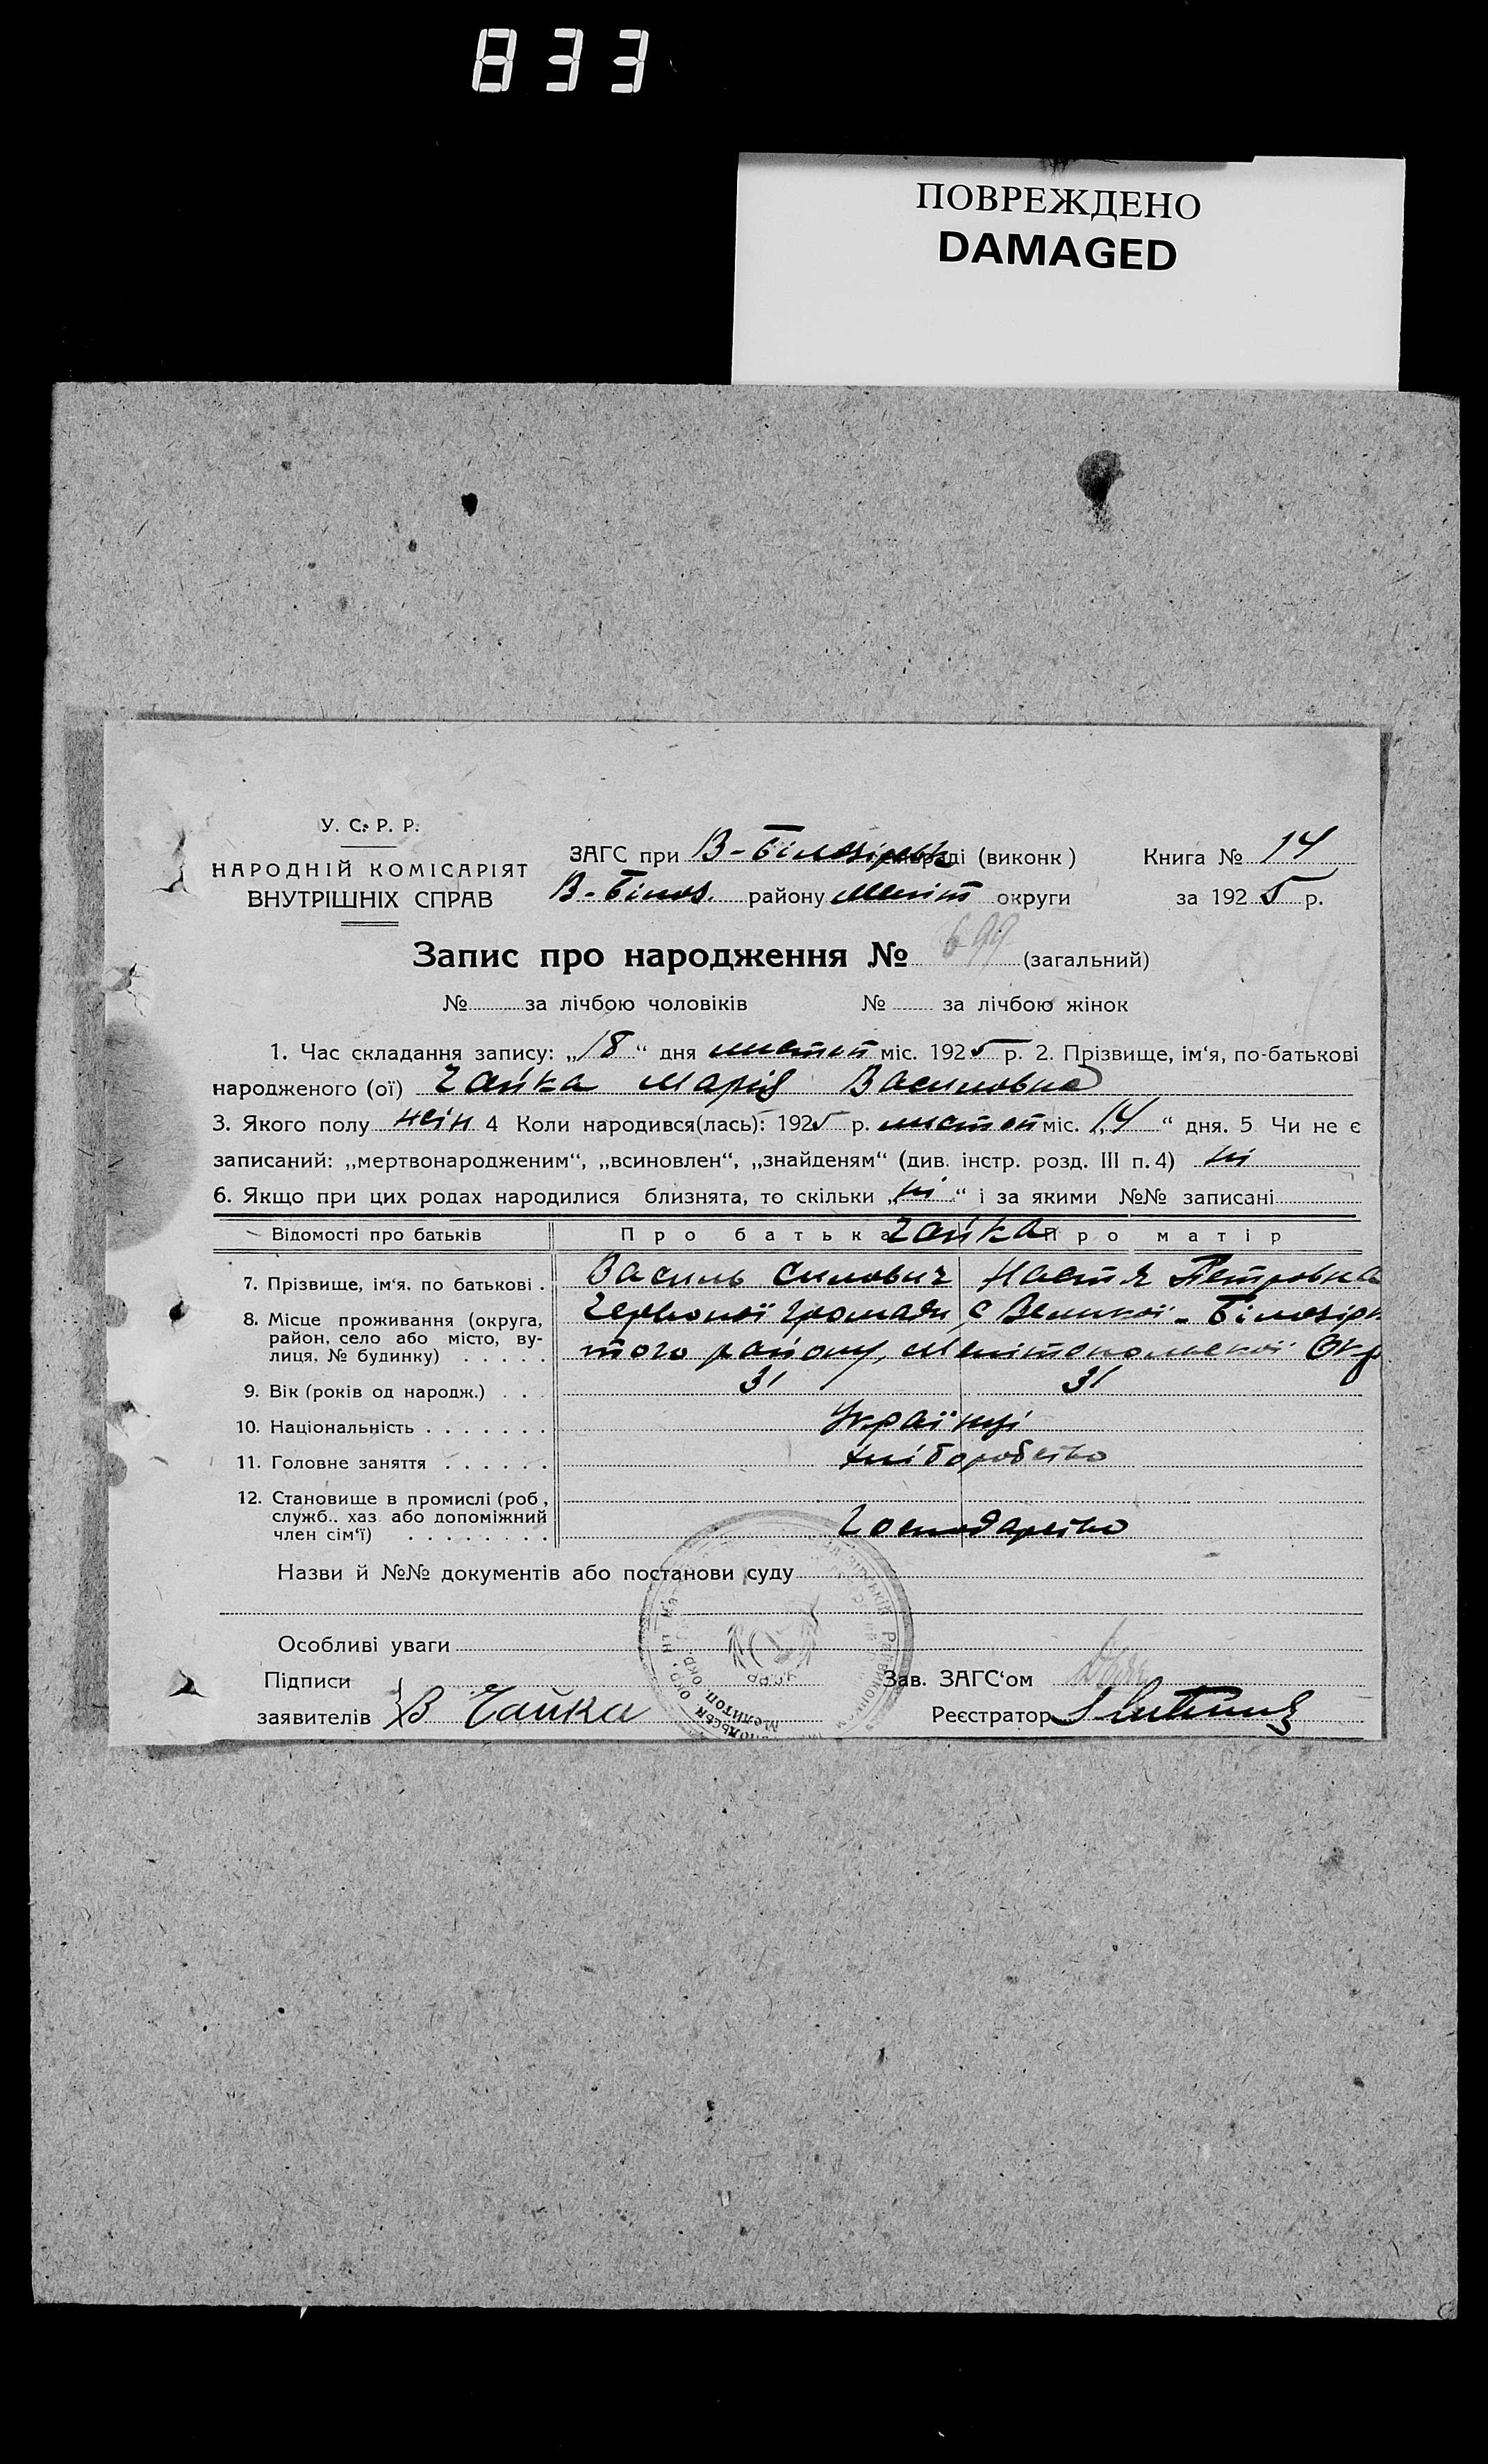 833
ПОВРЕЖДЕНО
DAMAGED
У. С. Р. Р.
НАРОДНІЙ КОМІСАРІЯТ
ВНУТРІШНІХ СПРАВ
ЗАГС при В-Білозірськ раді (виконк)
В-Білоз. району Меліт округи
Книга № 14
за 1925 р.
Запис про народження № 699 (загальний)
№ за лічбою чоловіків № за лічбою жінок
1. Час складання запису: „18“ дня листоп міс. 1925 р. 2. Прізвище, ім‘я, по-батькові
народженого (ої) Чайка Марія Василовна
3. Якого полу жін 4 Коли народився(лась): 1925 р. листоп міс. „14“ дня. 5 Чи не є
записаний: „мертвонародженим“, „всиновлен“, „знайденям“ (див. інстр. розд. III п. 4) ні
6. Якщо при цих родах народилися близнята, то скільки „ні“ і за якими №№ записані
Відомості про батьків Про батька Чайка Про матір
7. Прізвище, ім‘я, по батькові . Василь Силович Настя Петровна
8. Місце проживання (округа, Червоної Громади, с Великої-Білозірк
район, село або місто, ву-
лиця, № будинку) . . . . . того району, Мелітопольської Окр
9. Вік (років од народж.) . . . 31 31
10. Національність . . . . . . . Українці
11. Головне заняття . . . . . . хліборобство
12. Становище в промислі (роб,
служб.. хаз або допоміжний
член сім‘ї) . . . . . . . . Господарство
Назви й №№ документів або постанови суду
Особливі уваги
Підписи
заявителів В Чайка
Зав. ЗАГС‘ом
Реєстратор